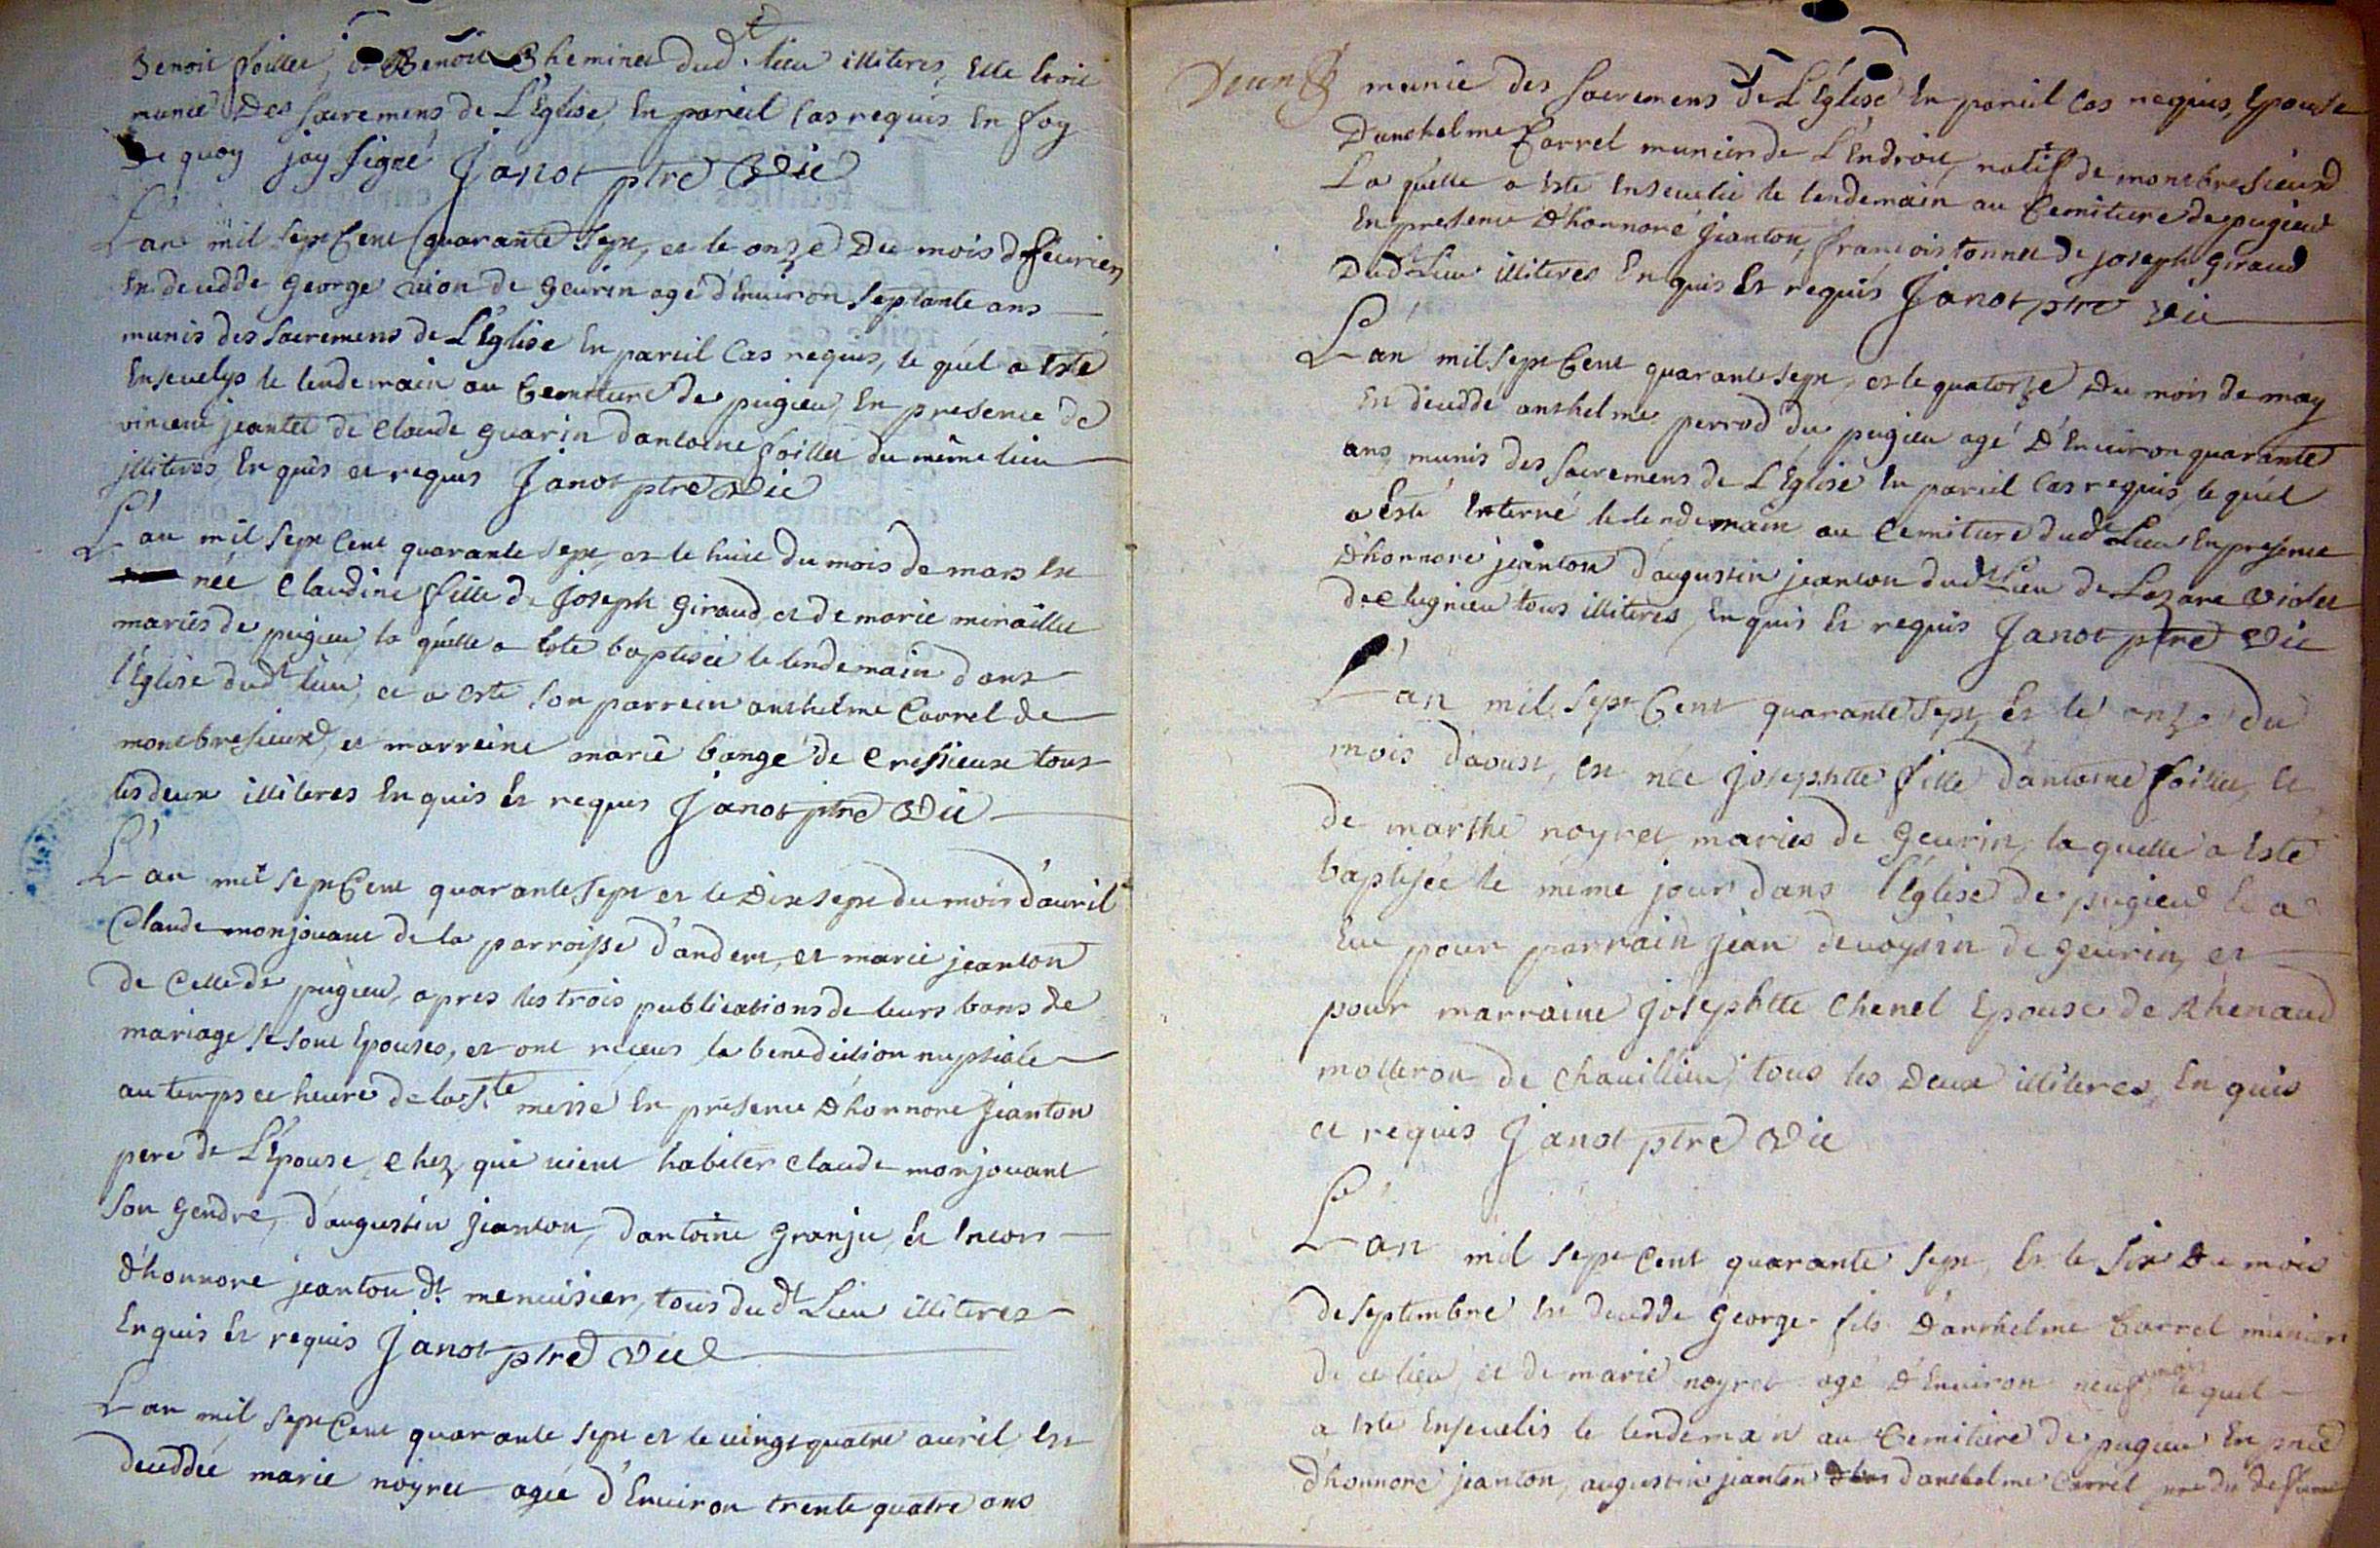 Benoit foillet, et Benoit Cheminet dud.t lieu illiteres, Elle Etoit
munie Des sacremens de L'Eglise, En pareil Cas requis En foy
De quoy jay signé Janot ptre Vic
L'an mil sept Cent quarante sept, et le onze Du mois de feurier,
En decedde George de geurin agé d'Enuiron septante ans
munis des sacremens de L'Eglise En pareil Cas requis, le quel a Esté
Enseuelys le lendemain au Cemitiere de pugieu, En presence de
vincent jeantet de Claude guarin d'antoine foillet du même lieu
illiteres, En quis et requis Janot ptre Vic
L'an mil sept Cent quarante sept, et le huit Du mois de mars Est
née Claudine fille de Joseph Giraud, et de marie miraillet
mariés de pugieu, la quelle a Esté baptisée le lendemain dans
l'Eglise dud.t lieu, et a esté son parrein anthelme Correl de
montbresieux, et marreine marie bange de Cressieux tous
les deux illiteres En quis Et requis Janot ptre Vic
L'an mil sept Cent quarante sept et le Dix sept du mois d'auril
Claude monjouant de la parroisse d'andert, et marie jeanton
de Celle de pugieu, apres les trois publications de leurs bans de
mariage se sont Epousés, et ont recus la benediction nuptiale
au temps et heure de la S.te messe En presence D'honnore Jeanton
pere de L'Epouse, Chez qui uient habiter Claude monjouant
son gendre, d'augustin jeanton, d'antoine granju, et Encors
d'honnore jeanton d.t menuisier, tous dud.t Lieu illiteres
En quis Et requis Janot ptre Vic
L'an mil sept Cent quarante sept et le uingt quatre auril Est
deceddée marie noyret agée d'Enuiron trente quatre ans
munie des sacremens de L'Eglise En pareil Cas requis, Epouse
D'anthelme Correl munier de L'Endroit, natif de montbresieux
La quelle a Esté Enseuelie le lendemain au Cemitiere de pugieu
En presence d'honnoré Jeanton, francois tonnet de joseph Giraud
Dud.t Lieu illiteres En quis Et requis Janot ptre Vic
L'an mil sept Cent quarante sept, et le quatorze Du mois de may
En decedde anthelme perrod du pugieu agé D'Enuiron quarante
ans, munis des sacremens de L'Eglise En pareil Cas requis, le quel
a Esté Enterré le lendemain au Cemitiere dud.t Lieu En presence
D'honnoré jeanton d'augustin jeanton dud.t Lieu de Lazare Violet
de Chugnieu tous illiteres, En quis Et requis Janot ptre Vic
L'an mil sept Cent quarante sept, Et le onze Du
mois d'aoust, est née josephtte fille d'antoine foillet, Et
de marthe noyret mariés de geurin, la quelle a Esté
baptisée le même jour dans l'Eglise de pugieu Et a
Eut pour parrain jean deuoysin de geurin, et
pour marraine josephtte Chenel Epouse de Rhenaud
molleron de Chauillieu, tous les Deux illiteres, En quis
et requis Janot ptre Vic
L'an mil sept Cent quarante sept, Et le six Du mois
de septembre Est decedde George fils D'anthelme Correl munier
de ce lieu, et de marie noyret agé d'Enuiron neuf mois, le quel
a Esté Enseuelis le lendemain au Cemitiere de pugieu En pnce
d'honnore jeanton, augustin jeanton d'anthelme Correl pere du deffunt